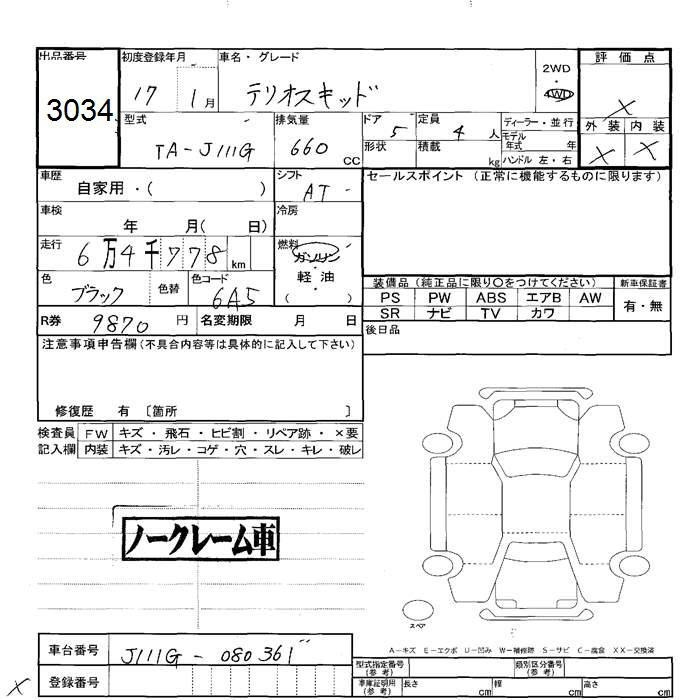 出品番号 初度登録年月 車名・グレード 2WD・4WD 評価点
3034 17 1月 テリオスキッド X
型式 排気量 ドア 5 定員 4 人 ディーラー・並行 外装 内装
TA-J111G 660 CC 形状 積載 kg モデル年式 年 X X
ハンドル 左・右
車歴 自家用・( ) シフト AT セールスポイント (正常に機能するものに限ります)
車検 年 月( 日) 冷房
走行 6万4千778 km 燃料 ガソリン
軽・油
( )
色 ブラック 色替 色コード 6A5
装備品 (純正品に限り○をつけてください) 新車保証書
PS PW ABS エアB AW 有・無
SR ナビ TV カワ
R券 9870 円 名変期限 月 日 後日品
注意事項申告欄(不具合内容等は具体的に記入して下さい)
修復歴 有 〔箇所 〕
検査員 FW キズ・飛石・ヒビ割・リペア跡・×要
記入欄 内装 キズ・汚レ・コゲ・穴・スレ・キレ・破レ
ノークレーム車
スペア
A-キズ E-エクボ U-凹み W-補修跡 S-サビ C-腐食 XX-交換済
車台番号 J111G-080361
登録番号
型式指定番号(参考) 類別区分番号(参考)
車庫証明用(参考) 長さ cm 幅 cm 高さ cm
X